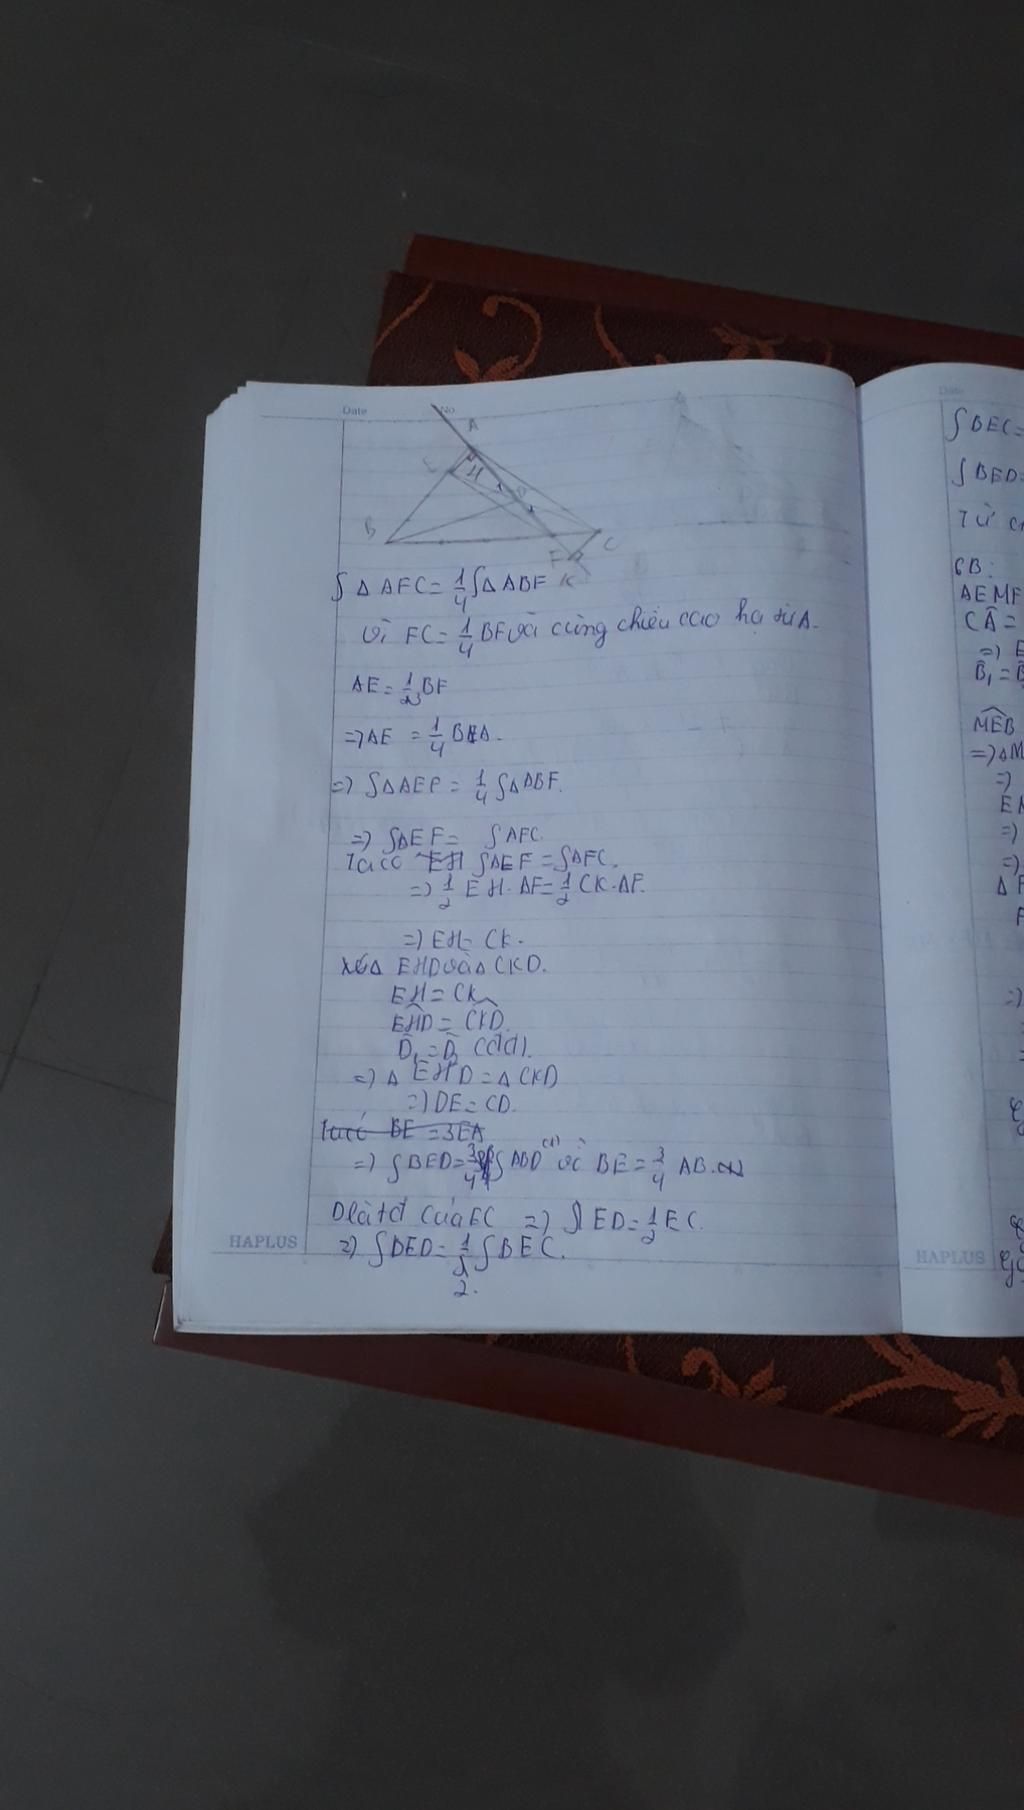 Date No.
A
E H
D
B C
F
K
S Δ AFC = 1/4 S Δ ABF
Vì FC = 1/4 BF và cùng chiều cao hạ từ A.
AE = 1/3 BF
=> AE = 1/4 BA.
=> SΔAEF = 1/4 SΔABF.
=> SAEF = SAFC.
Ta có EH SAEF = SAFC.
=> 1/2 EH. AF = 1/2 CK. AF.
=> EH = CK.
Xét Δ EHD và Δ CKD.
EH = CK
EHD = CKD.
D1 = D2 (đđ).
=> Δ EHD = Δ CKD
=> DE = CD.
Ta có BE = 3EA
=> SBED = 3/4 SABD (1) vì BE = 3/4 AB.
D là tđ của EC => ED = 1/2 EC.
=> SBED = 1/2 SBEC.
2.
HAPLUS
Date
SBEC =
SBED =
Từ
CB:
AEMF
CÂ =
=>
B1 =
MEB
=> ΔM
=>
=>
=>
=>
=
HAPLUS